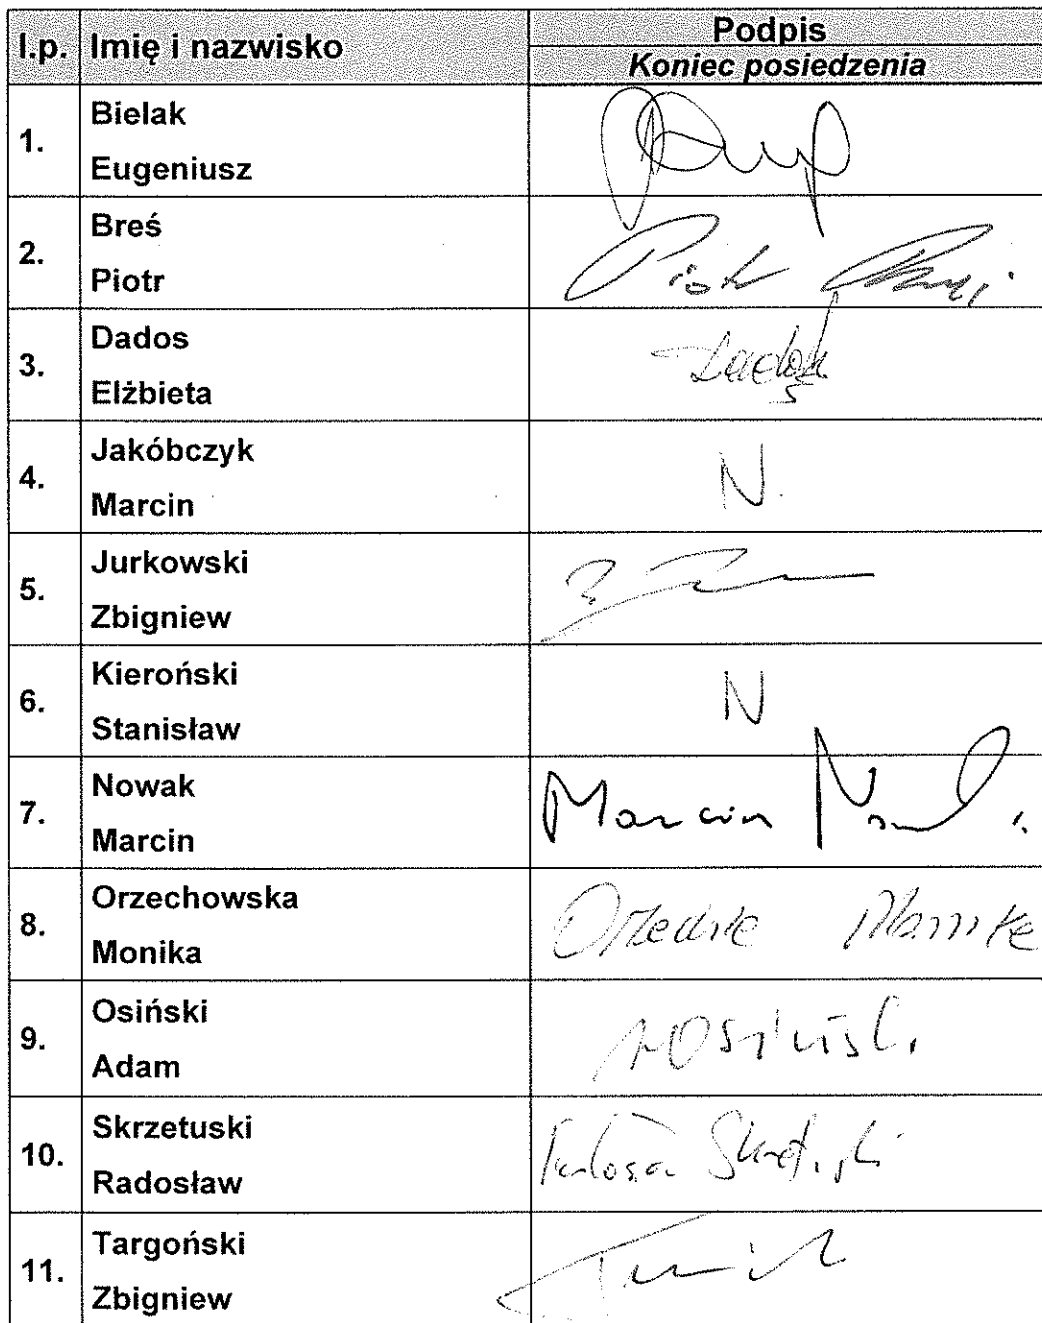 l.p. Imię i nazwisko Podpis
Koniec posiedzenia
1. Bielak
Eugeniusz
2. Breś
Piotr
Piotr
3. Dados
Elżbieta
4. Jakóbczyk
Marcin
N
5. Jurkowski
Zbigniew
6. Kieroński
Stanisław
N
7. Nowak
Marcin
Marcin
8. Orzechowska
Monika
9. Osiński
Adam
10. Skrzetuski
Radosław
11. Targoński
Zbigniew